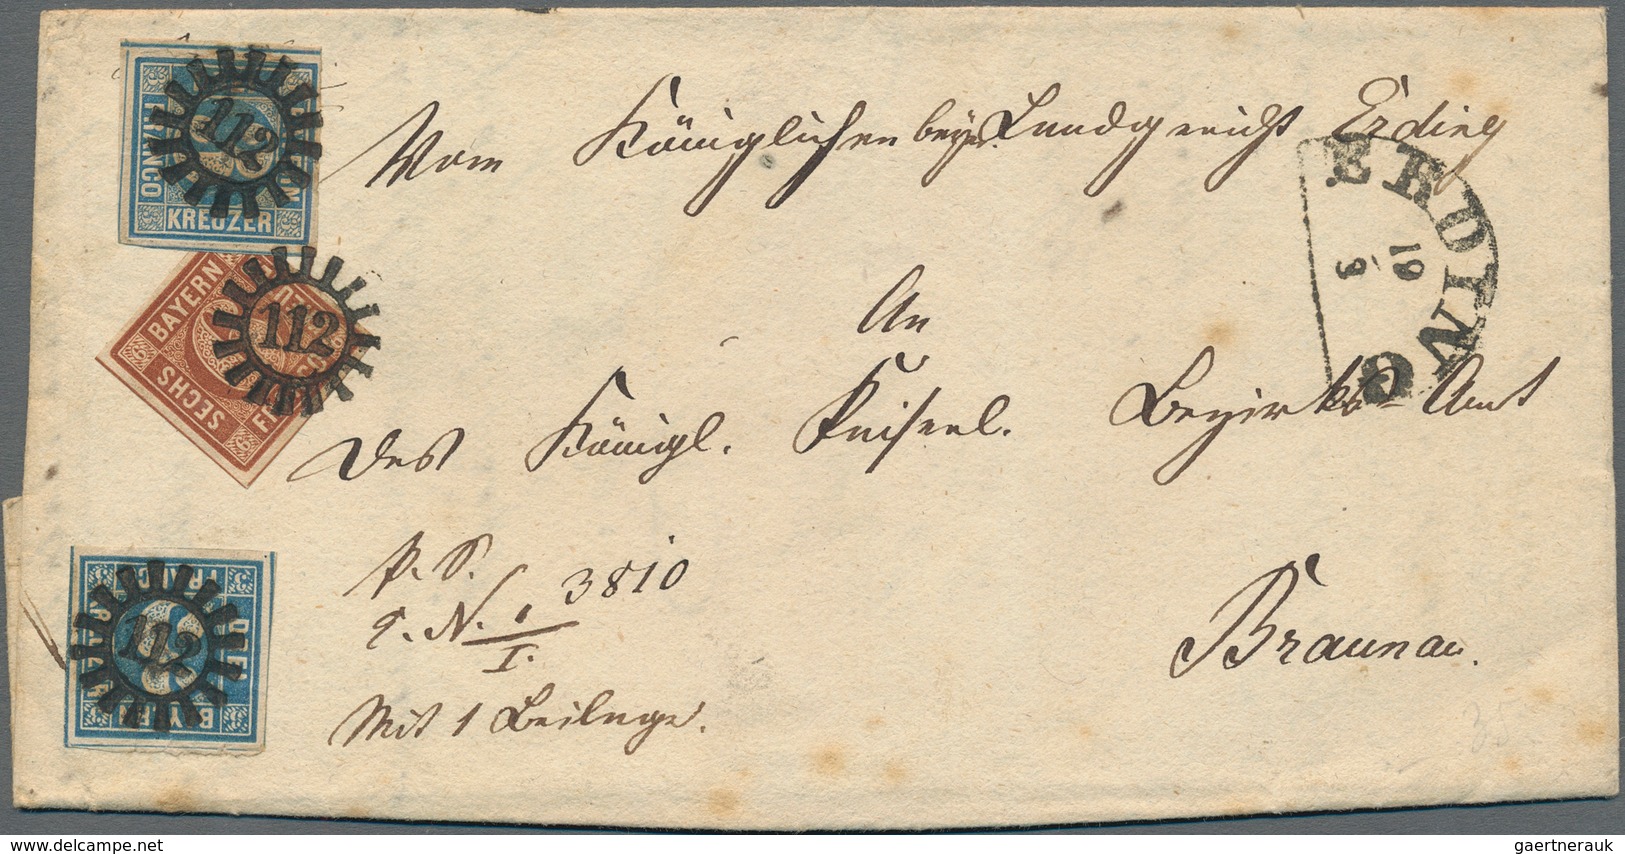 Vom Königlichen bayr. Landgericht Erding
ERDING
19
9
An
Das Königl. Kaiserl. Bezirks-Amt
Braunau.
P. S.
E. N. 1/I. 3810
Mit 1 Beilage.
FRANCO
KREUZER
112
BAYERN
SECHS
112
FRANCO
DREI
BAYERN
112
35
gaertnerauk